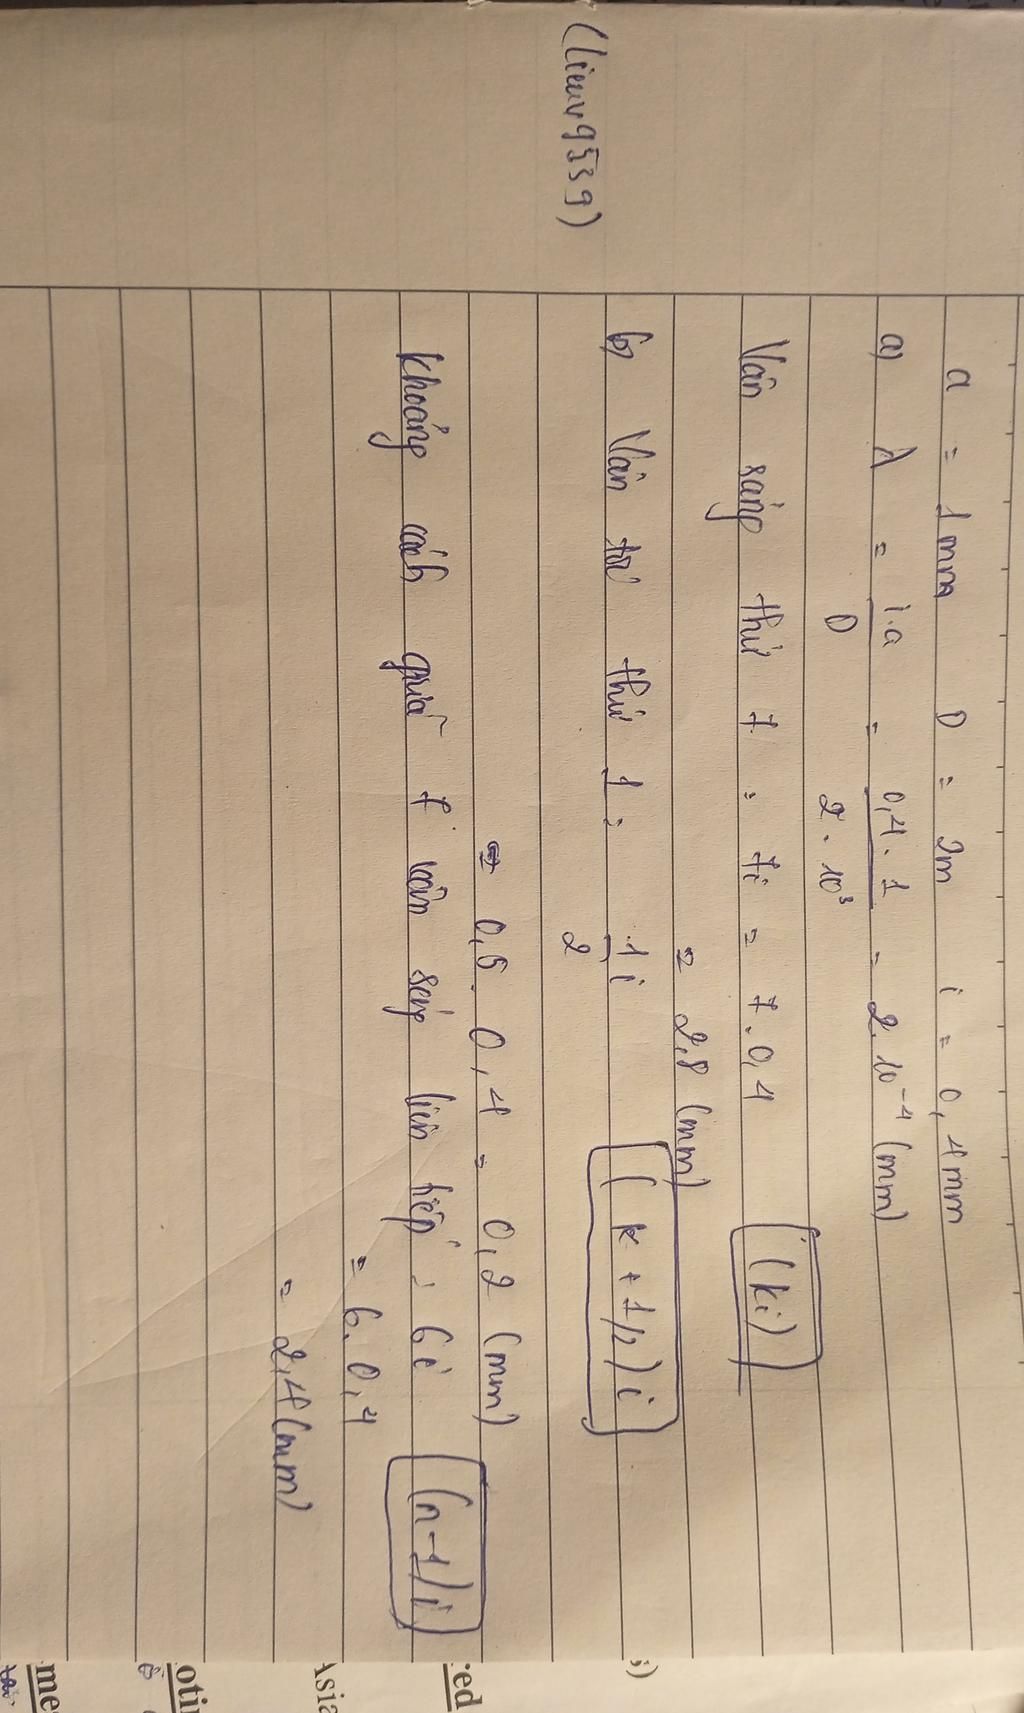 a = 1mm D = 2m i = 0,4mm
a) λ = i.a / D = 0,4.1 / 2.10³ = 2.10⁻⁴ (mm)
Vân sáng thứ 7 : 7i = 7.0,4 (ki)
= 2,8 (mm)
b) Vân tối thứ 1 : 1/2 i (k + 1/2) i
= 0,5. 0,4 = 0,2 (mm)
Khoảng cách giữa 7 vân sáng liên tiếp : 6i (n-1) i
= 6.0,4
= 2,4 (mm)
(lieuv9539)
;)
red
Asia
oti
me